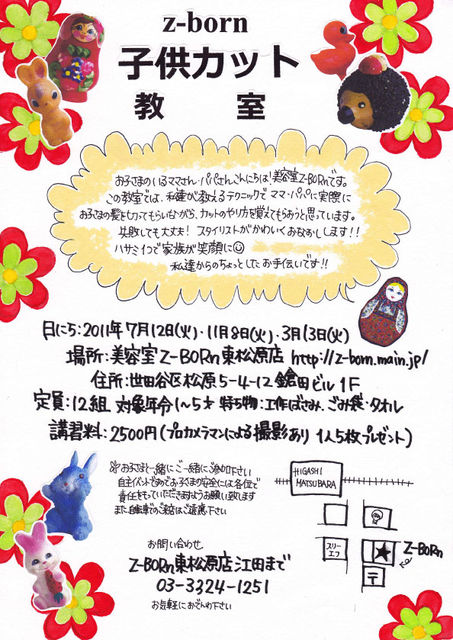 z-born
子供カット
教室
お子さまのいるママさん・パパさんこんにちは！美容室Z-BORnです。
この教室では、私達が教えるテクニックでママ・パパに実際に
お子さまの髪をカットしてもらいながら、カットのやり方を覚えてもらおうと思っています。
失敗しても大丈夫！スタイリストがかわいくおなおしします！！
ハサミ1つで家族が笑顔に
私達からのちょっとしたお手伝いです!!
日にち:2011年7月12日(火)・11月8日(火)・3月13日(火)
場所:美容室Z-BORn東松原店 http://z-born.main.jp/
住所:世田谷区松原5-4-12 鎗田ビル1F
定員:12組 対象年令1〜5才 持ち物:工作ばさみ、ごみ袋・タオル
講習料:2500円(プロカメラマンによる撮影あり 1人5枚プレゼント)
お子さまと一緒にご一緒にご参加下さい
自主イベントですのでお子さまの安全には各位で
責任をもっていただきますようお願い致します
また自転車のご来店はご遠慮下さい
お問い合わせ
Z-BORn東松原店 江田まで
03-3324-1251
お気軽におでんわ下さい
HIGASHI
MATSUBARA
スリー
エフ
Z-BORn
〒